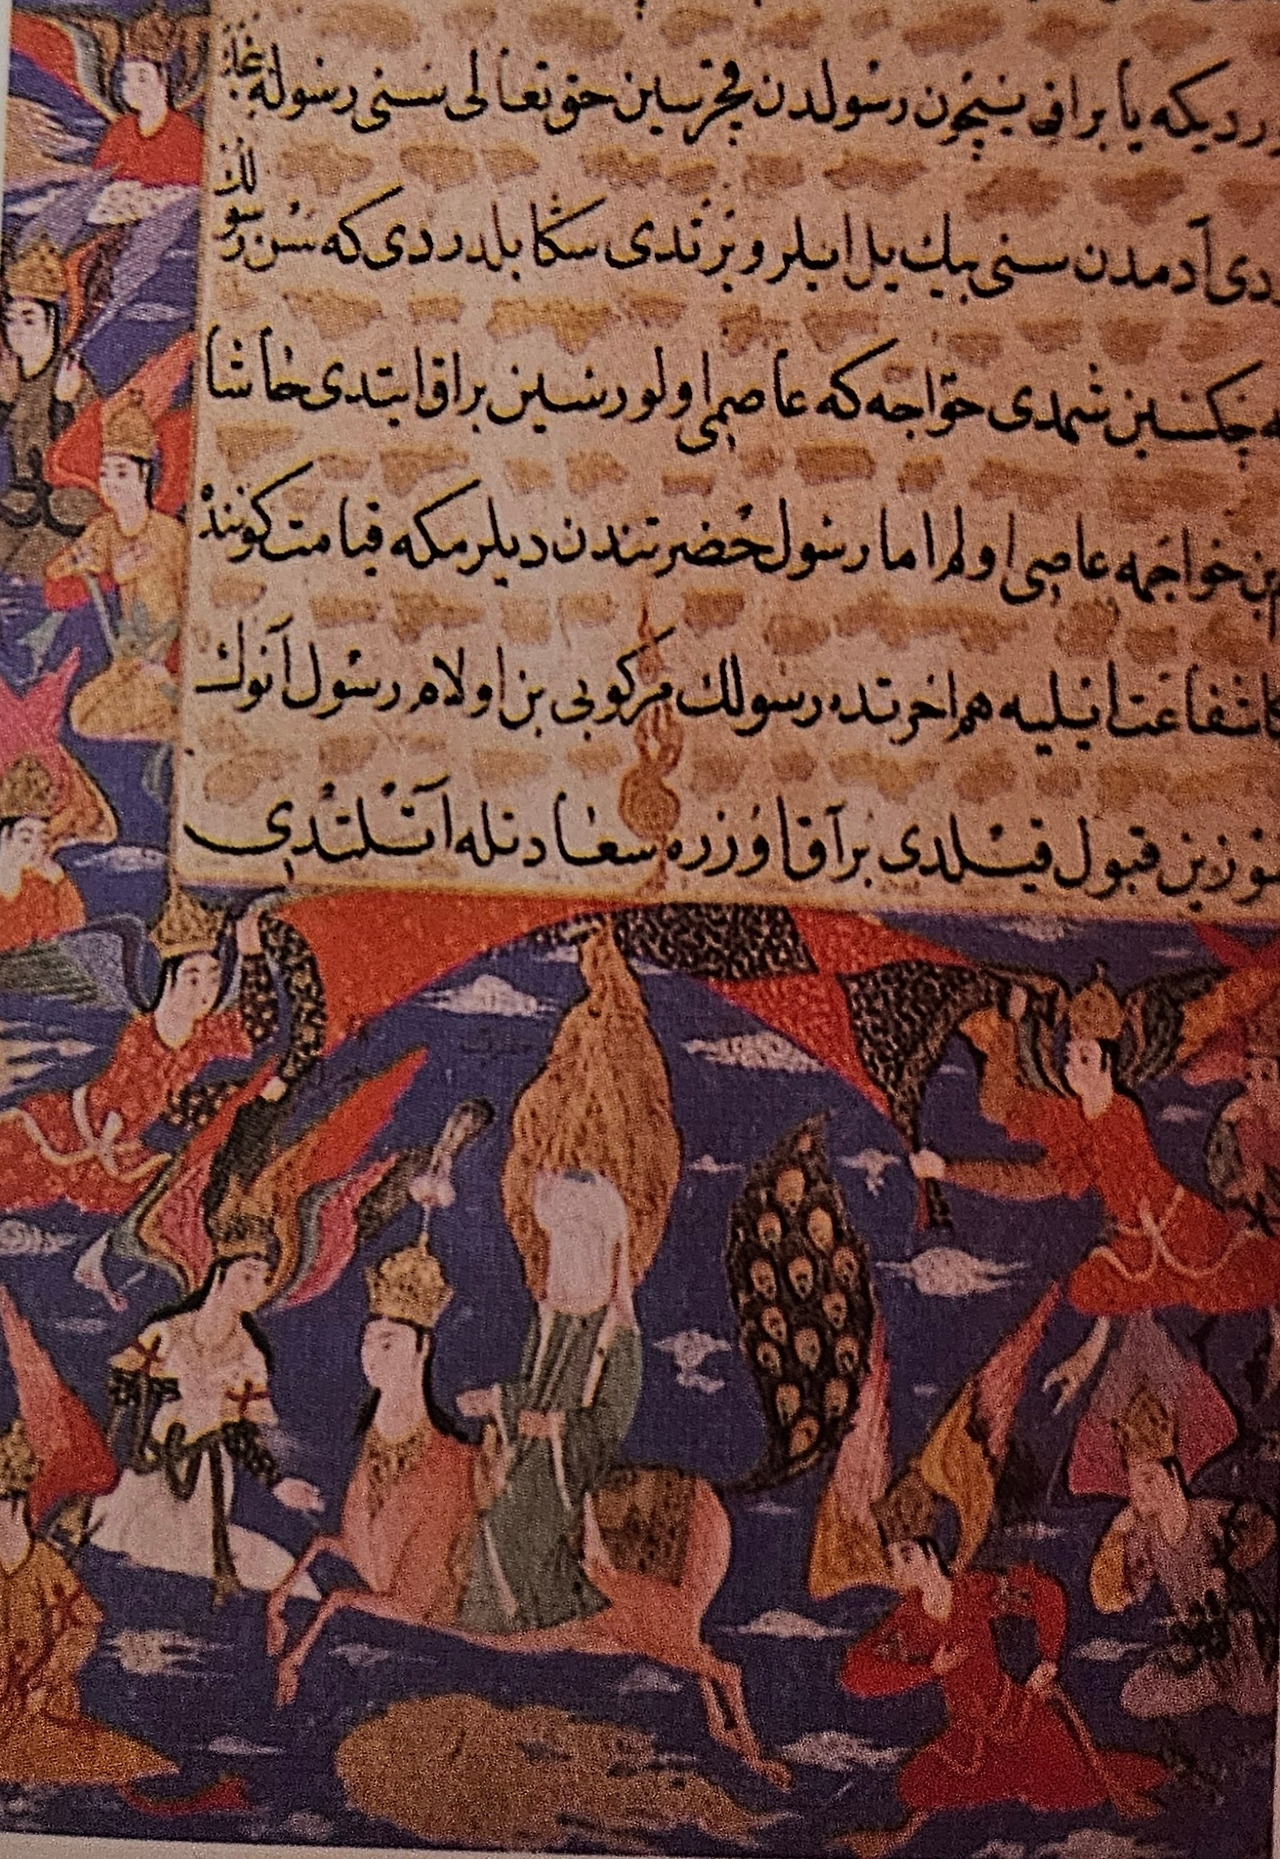 ور دیكه یا براق نیچون رسولدن قچرسین حق تعالی سنی رسوله
دی آدمدن سنی بیك یل ایلرو یرتدی سكا بلدردی كه سن رسولك
چكسین شمدی خواجه كه عاصمی اولورسین براق ایتدی حاشا
بن خواجمه عاصی اولم اما رسول حضرتندن دیلرمكه قیامت كوننده
شفاعت ایلیه هم اخرتده رسولك مركوبی بن اولام رسول آنوك
سوزین قبول قیلدی براق اوزره سعادتله آتلندی